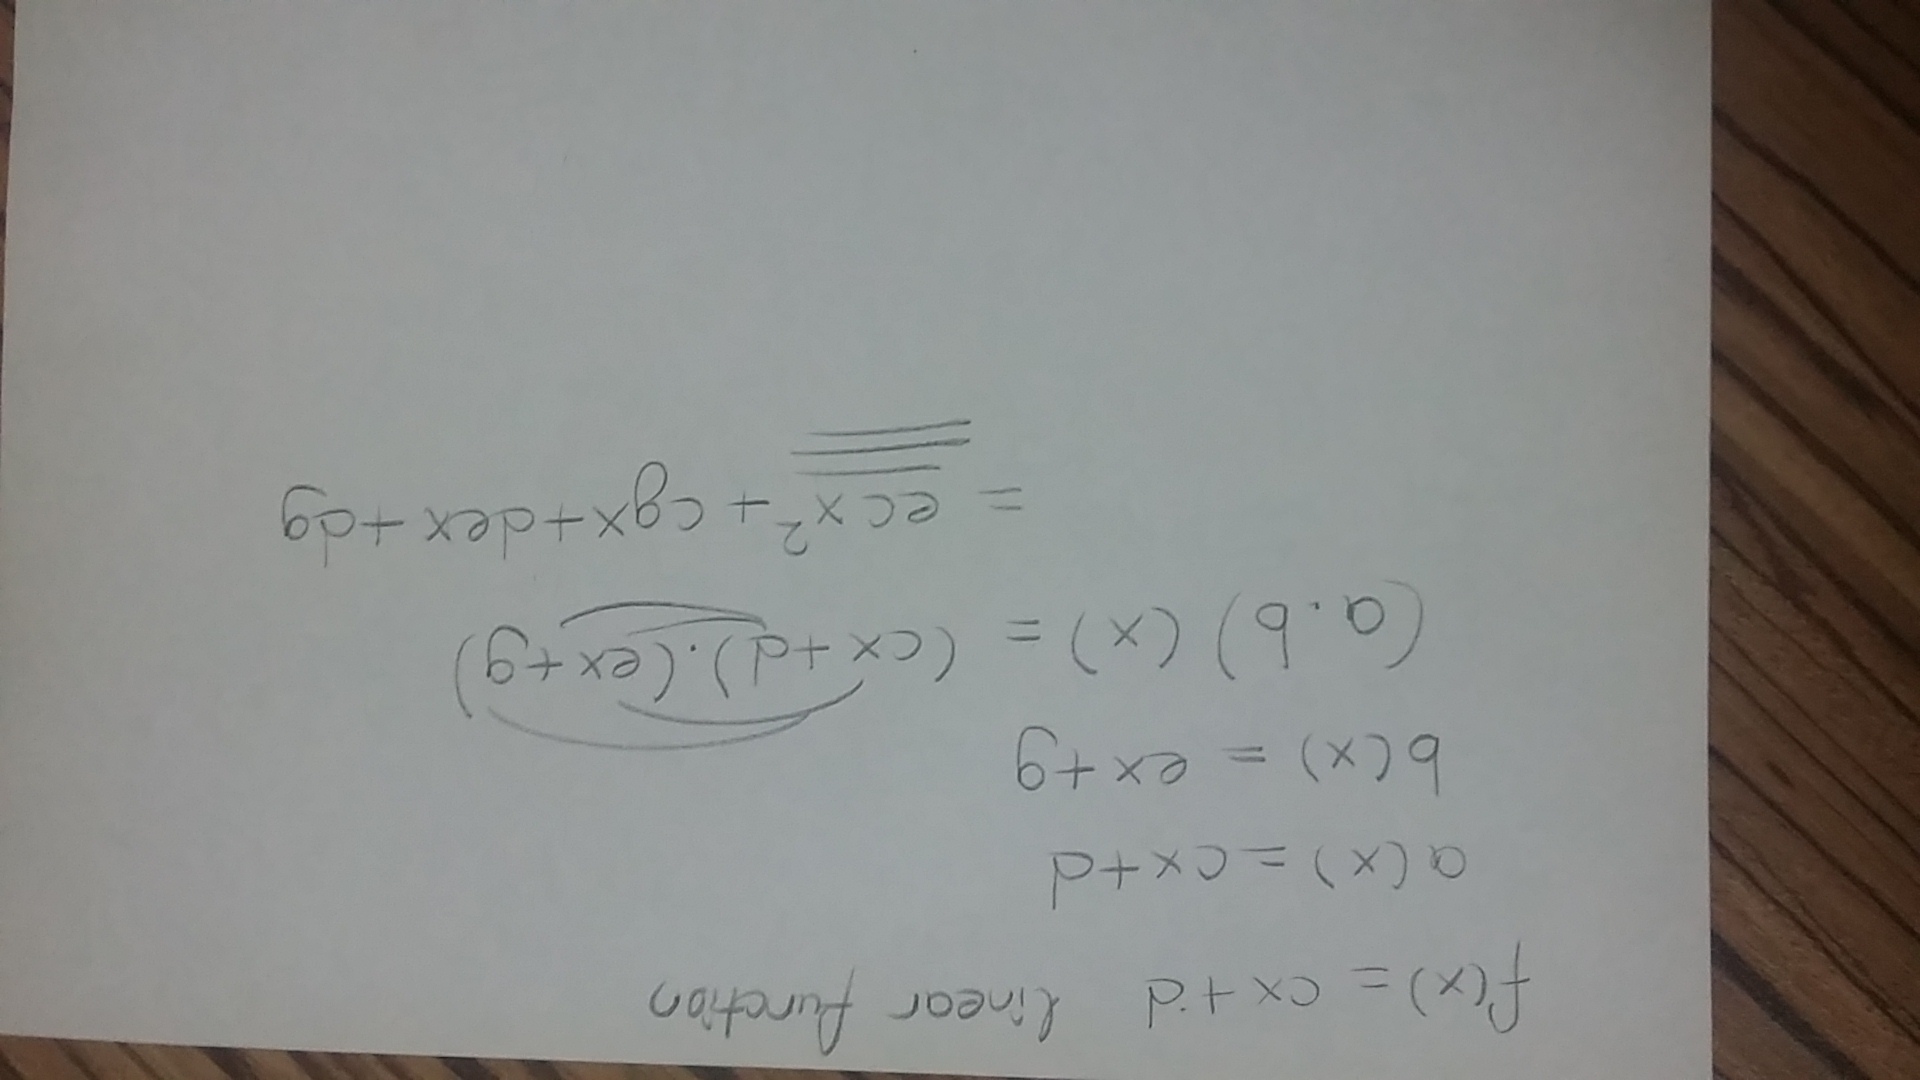 f(x) = cx+d linear function
a(x) = cx+d
b(x) = ex+g
(a.b)(x) = (cx+d).(ex+g)
= ecx² + cgx+dex+dg